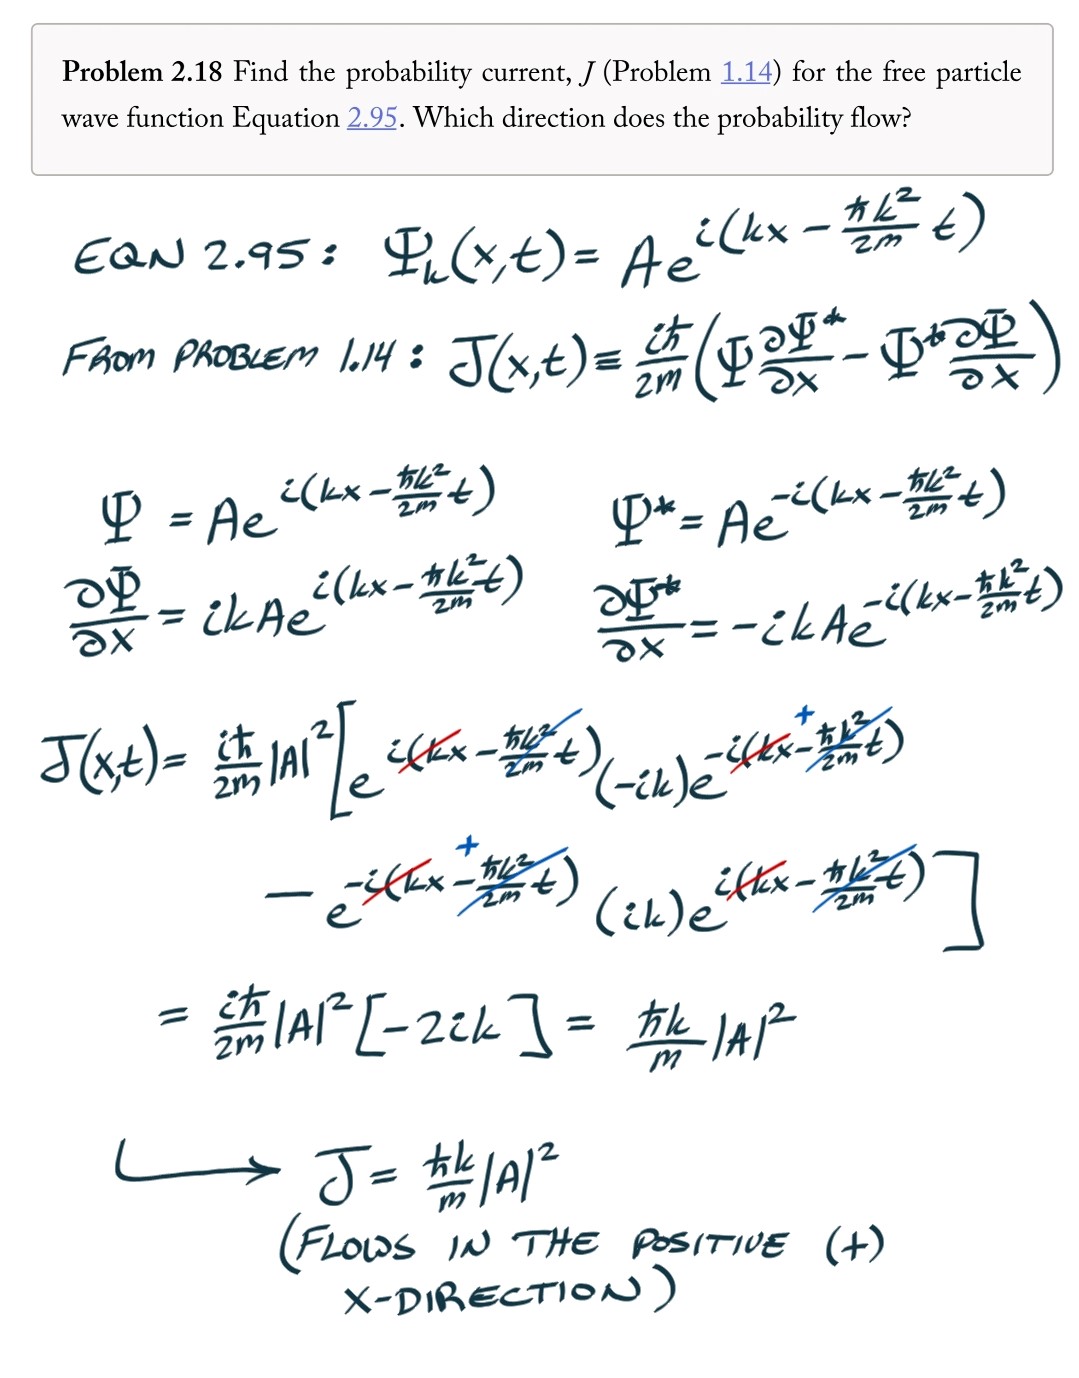 Problem 2.18 Find the probability current, J (Problem 1.14) for the free particle
wave function Equation 2.95. Which direction does the probability flow?
EQN 2.95: Ψₖ(x,t) = Ae^{i(kx - \frac{ħk²}{2m}t)}
FROM PROBLEM 1.14: J(x,t) ≡ \frac{iħ}{2m}(Ψ\frac{∂Ψ*}{∂x} - Ψ*\frac{∂Ψ}{∂x})
Ψ = Ae^{i(kx - \frac{ħk²}{2m}t)} Ψ* = Ae^{-i(kx - \frac{ħk²}{2m}t)}
\frac{∂Ψ}{∂x} = ikAe^{i(kx - \frac{ħk²}{2m}t)} \frac{∂Ψ*}{∂x} = -ikAe^{-i(kx - \frac{ħk²}{2m}t)}
J(x,t) = \frac{iħ}{2m}|A|²[e^{i(kx - \frac{ħk²}{2m}t)}(-ik)e^{-i(kx -^{+} \frac{ħk²}{2m}t)}
- e^{-i(kx -^{+} \frac{ħk²}{2m}t)}(ik)e^{i(kx - \frac{ħk²}{2m}t)}]
= \frac{iħ}{2m}|A|²[-2ik] = \frac{ħk}{m}|A|²
→ J = \frac{ħk}{m}|A|²
(FLOWS IN THE POSITIVE (+)
X-DIRECTION)